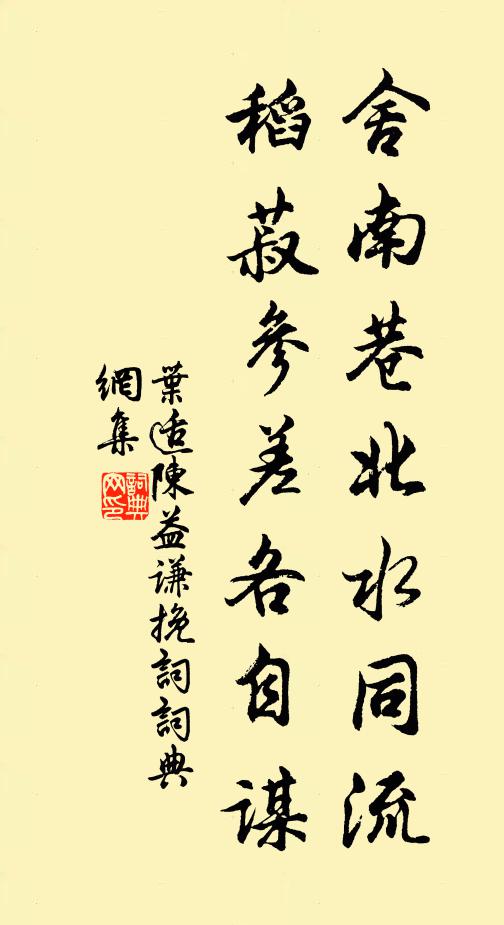 舍南巷北水同流
稻菽參差各自謀
葉适陳益謙挽詞詞典
網集
詞典
网印